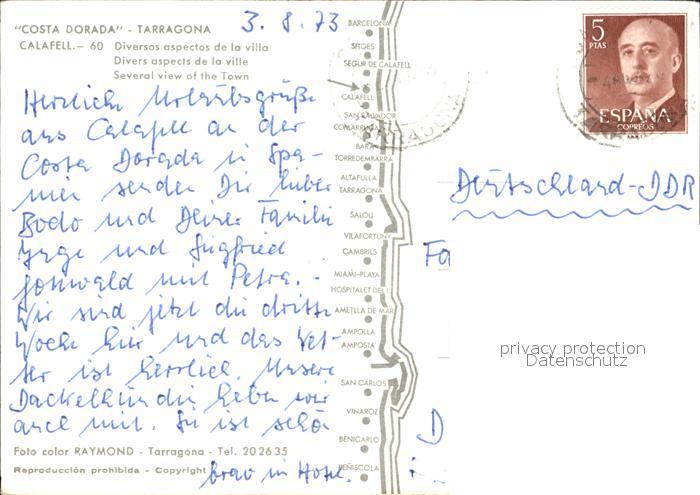 "COSTA DORADA" - TARRAGONA
CALAFELL. — 60 Diversos aspectos de la villa
Divers aspects de la ville
Several view of the Town
3. 8. 73
Herzliche Urlaubsgrüße
aus Calafell an der
Costa Dorada in Spa-
nien senden Dir lieber
Bodo und Deiner Familie
Inge und Siegfried
mit Petra. -
Wir sind jetzt die dritte
Woche hier und das Wet-
ter ist herrlich. Unsere
Dackelhündin haben wir
auch mit. Sie ist schön
brav im Hotel.
Foto color RAYMOND - Tarragona - Tel. 20 26 35
Reproducción prohibida - Copyright
BARCELONA
SITGES
SEGUR DE CALAFELL
CALAFELL
SAN SALVADOR
COMARRUGA
BARA
TORREDEMBARRA
ALTAFULLA
TARRAGONA
SALOU
VILAFORTUNY
CAMBRILS
MIAMI-PLAYA
HOSPITALET DEL I.
AMETLLA DE MAR
AMPOLLA
AMPOSTA
SAN CARLOS
VINAROZ
BENICARLO
PEÑISCOLA
5
PTAS
ESPAÑA
CORREOS
TARRAGONA
Deutschland-DDR
Fa
D
privacy protection
Datenschutz